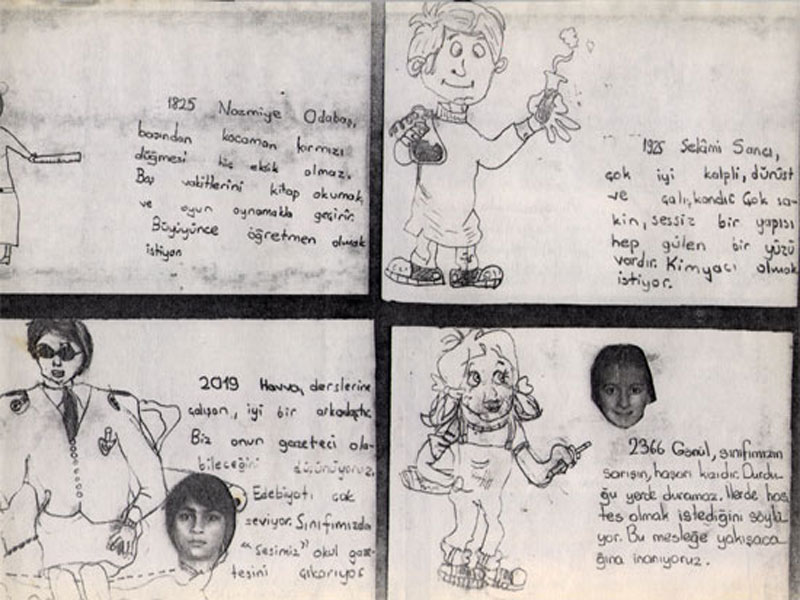 1825 Nazmiye Odabaşı,
başından kocaman kırmızı
düğmesi hiç eksik olmaz.
Boş vakitlerini kitap okumak
ve oyun oynamakla geçirir.
Büyüyünce öğretmen olmak
istiyor
1925 Selâmi Sancı,
çok iyi kalpli, dürüst
ve çalışkandır. Çok sa-
kin, sessiz bir yapısı
hep gülen bir yüzü
vardır. Kimyacı olmak
istiyor.
2019 Havva, derslerine
çalışan, iyi bir arkadaştır.
Biz onun gazeteci ola-
bileceğini düşünüyoruz.
Edebiyatı çok
seviyor. Sınıfımızda
"Sesimiz" okul gaze-
tesini çıkarıyor
2366 Gönül, sınıfımızın
sarışın, haşarı kızıdır. Durdu-
ğu yerde duramaz. İlerde hos-
tes olmak istediğini söylü-
yor. Bu mesleğe yakışaca-
ğına inanıyoruz.